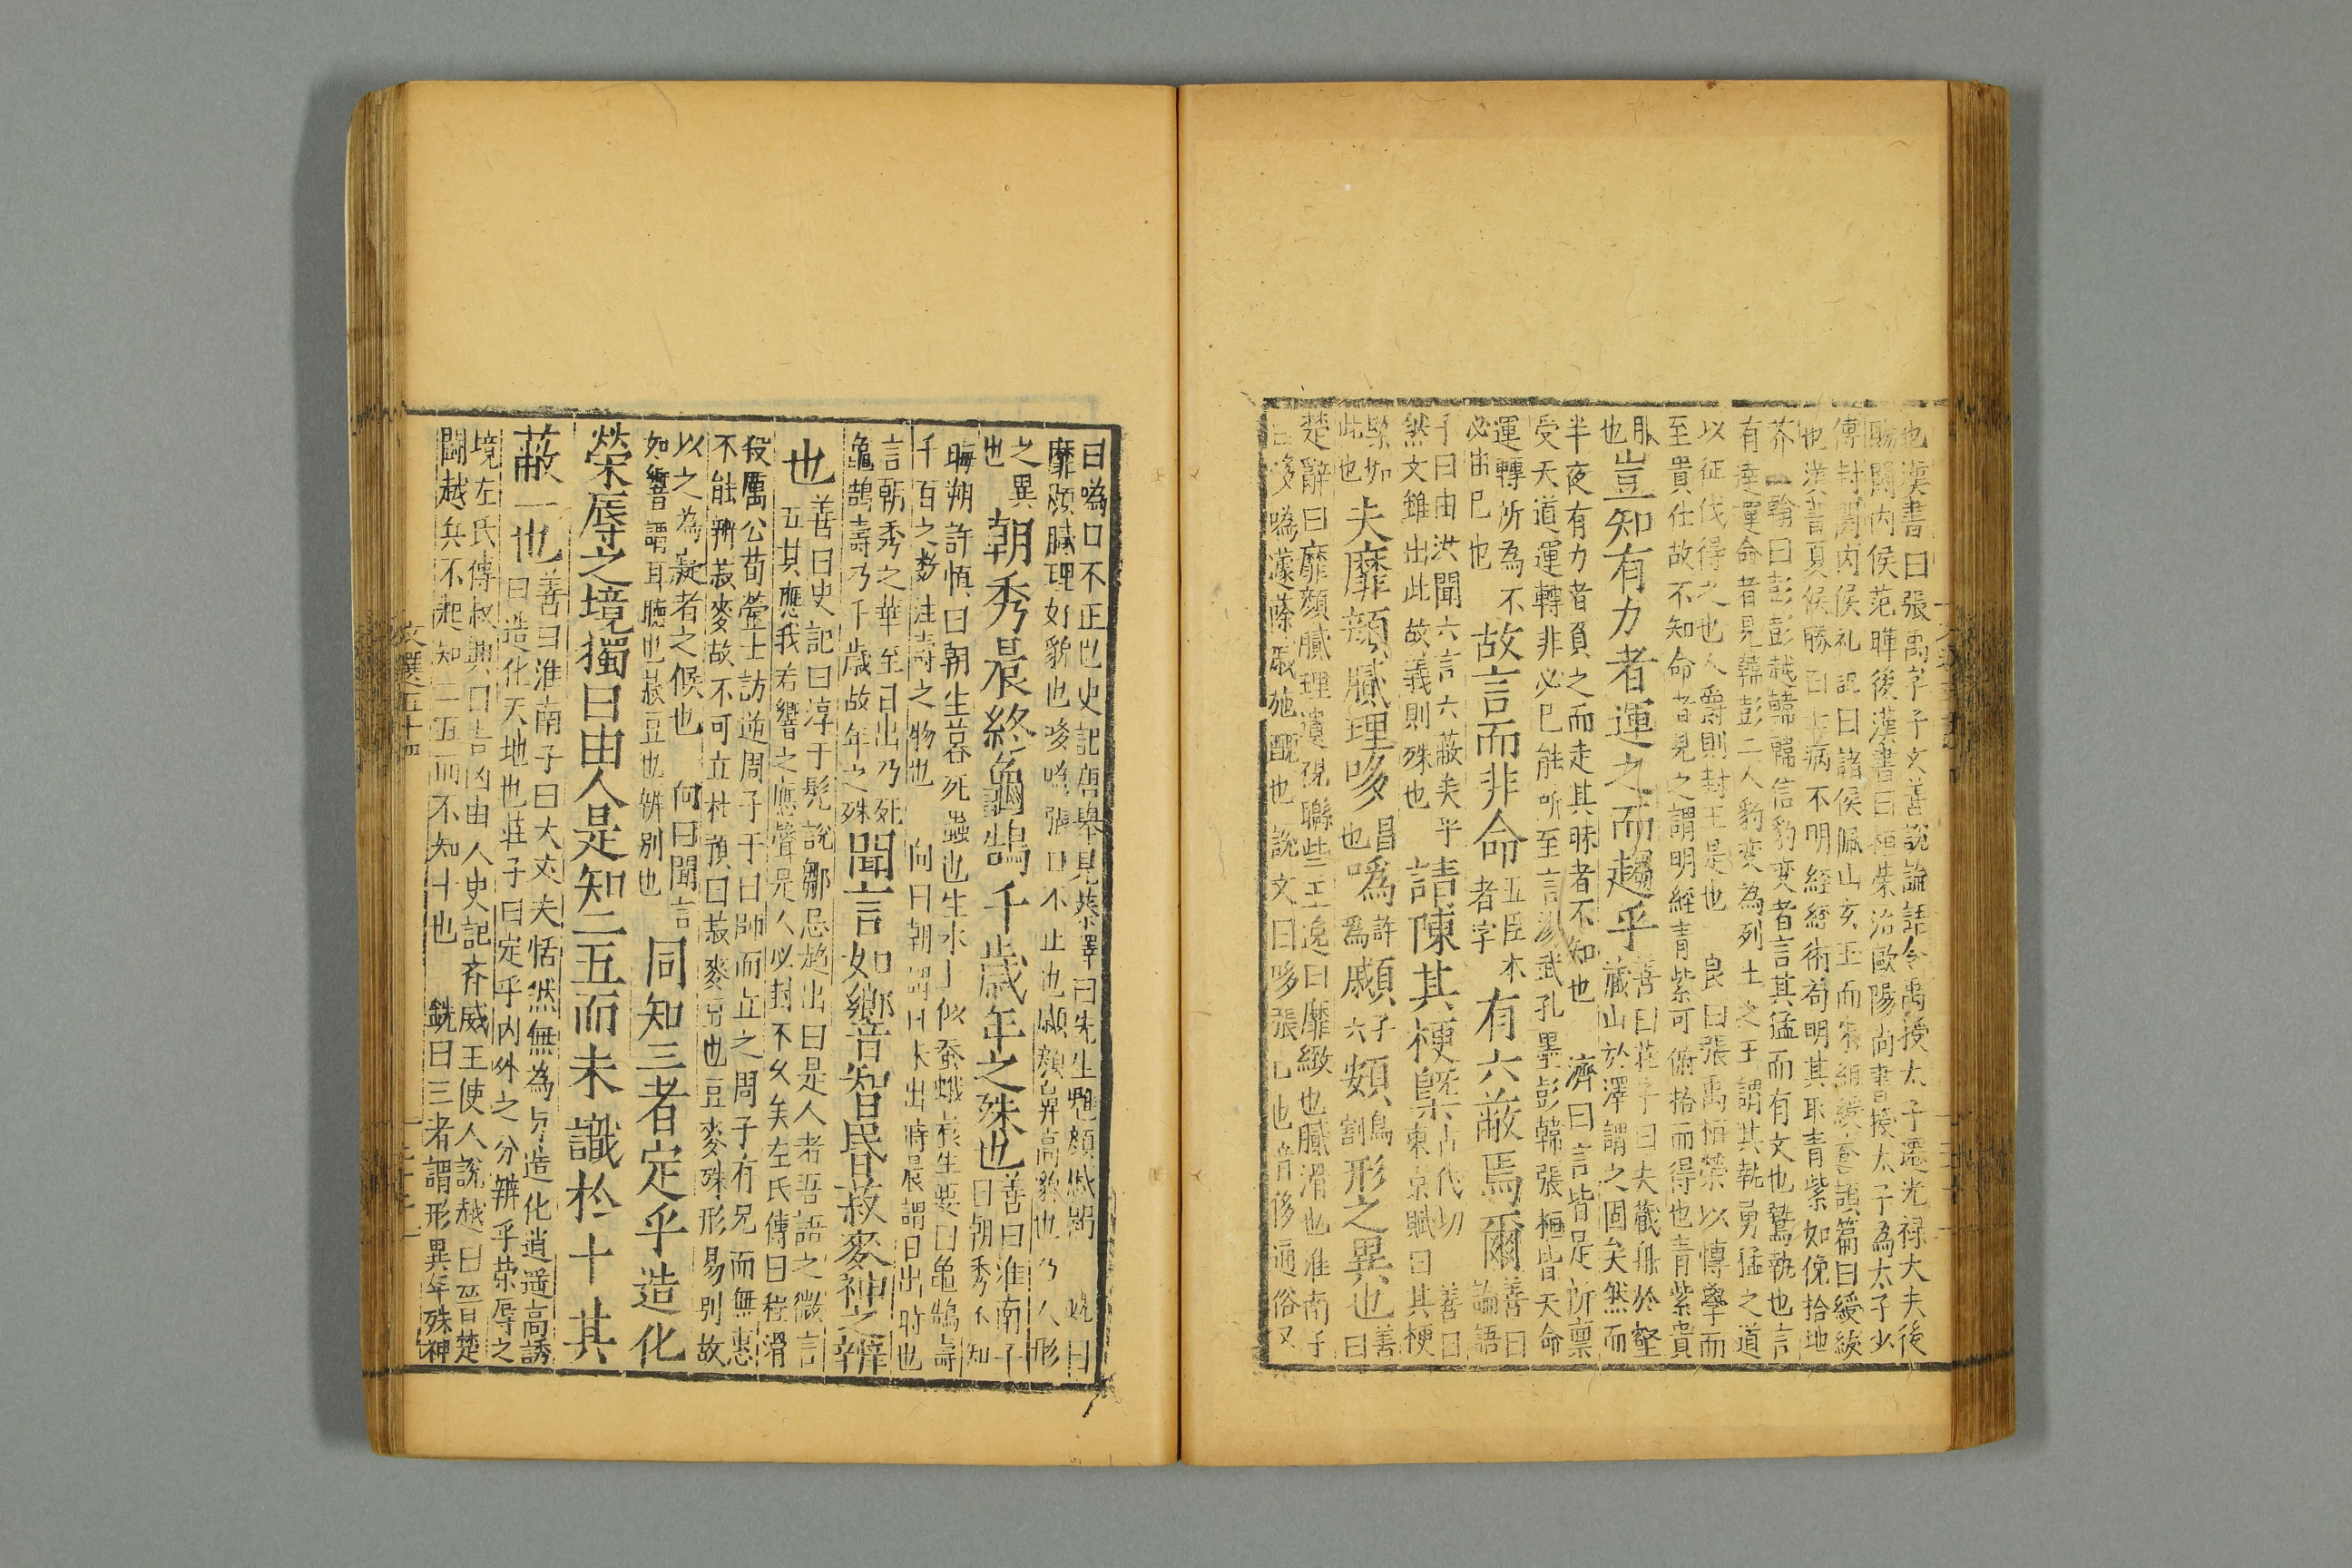 也漢書曰張禹字子文善說論語令禹授太子遷光禄大夫後
賜關内侯范曄後漢書曰桓榮治歐陽尚書授太子為太子少
傅封關内侯礼記曰諸侯佩山玄玉而朱組綬蒼頡篇曰綬紱
也漢書夏侯勝曰士病不明經經術苟明其取青紫如俛拾地
芥 翰曰彭彭越韓韓信豹変者言其猛而有文也鷙執也言
有達運命者見韓彭二人豹变為列土之王謂其執勇猛之道
以征伐得之也人爵則封王是也 良曰張禹桓榮以博學而
至貴仕故不知命者見之謂明經青紫可俯拾而得也青紫貴
服也豈知有力者運之而趨乎善曰莊子曰夫藏舟於壑藏山於澤謂之固矣然而
半夜有力者負之而走其昧者不知也 濟曰言皆是所禀
受天道運轉非必己能所至言湯武孔墨彭韓張桓皆天命
運轉所為不必由己也故言而非命五臣本者字有六蔽焉爾善曰論語
子曰由汝聞六言六蔽矣乎然文雖出此故義則殊也請陳其梗槩古代切 善曰東京賦曰其梗
槩如此也夫靡顏膩理哆昌也㖞許為顣子六頞烏割形之異也善曰
楚辭曰靡顏膩理遺視聯些王逸曰靡緻也膩滑也淮南子
曰哆㖞蘧蒢戚施醜也說文曰哆張口也音侈通俗文
曰㖞口不正也史記唐舉見蔡澤曰先生顒顏蹙齃 銑曰
靡顏膩理好貌也哆㖞張口不正也顣頞鼻高貌也乃人形
之異也朝秀晨終龜鵠千歲年之殊也善曰淮南子曰朝秀不知
晦朔許慎曰朝生暮死蟲也生水上似蚕蛾養生要曰龜鵠壽
千百之数注壽之物也 向曰朝謂日未出時晨謂日出時也
言朝秀之華至日出乃死龜鵠壽乃千歲故年之殊聞言如嚮智昬菽麥神之辨
也善曰史記曰淳于髡說鄒忌趍出曰是人者吾語之微言五其應我若響之應聲是人必封不久矣左氏傳曰程滑
殺厲公荀罃士訪逆周子于曰師而立之周子有兄而無惠
不能辨菽麥故不可立杜預曰菽麥豆也豆麥殊形易別故
以之為癡者之候也 向曰聞言如響謂耳聴也菽豆也辨別也同知三者定乎造化
榮辱之境獨曰由人是知二五而未識於十其
蔽一也善曰淮南子曰大丈夫恬然無為与造化逍遥高誘曰造化天地也莊子曰定乎内外之分辨乎榮辱之
境左氏傳叔興曰吉凶由人史記齊威王使人說越曰晉楚
鬭越兵不起知二五而不知十也 銑曰三者謂形異年殊神
文選五十四